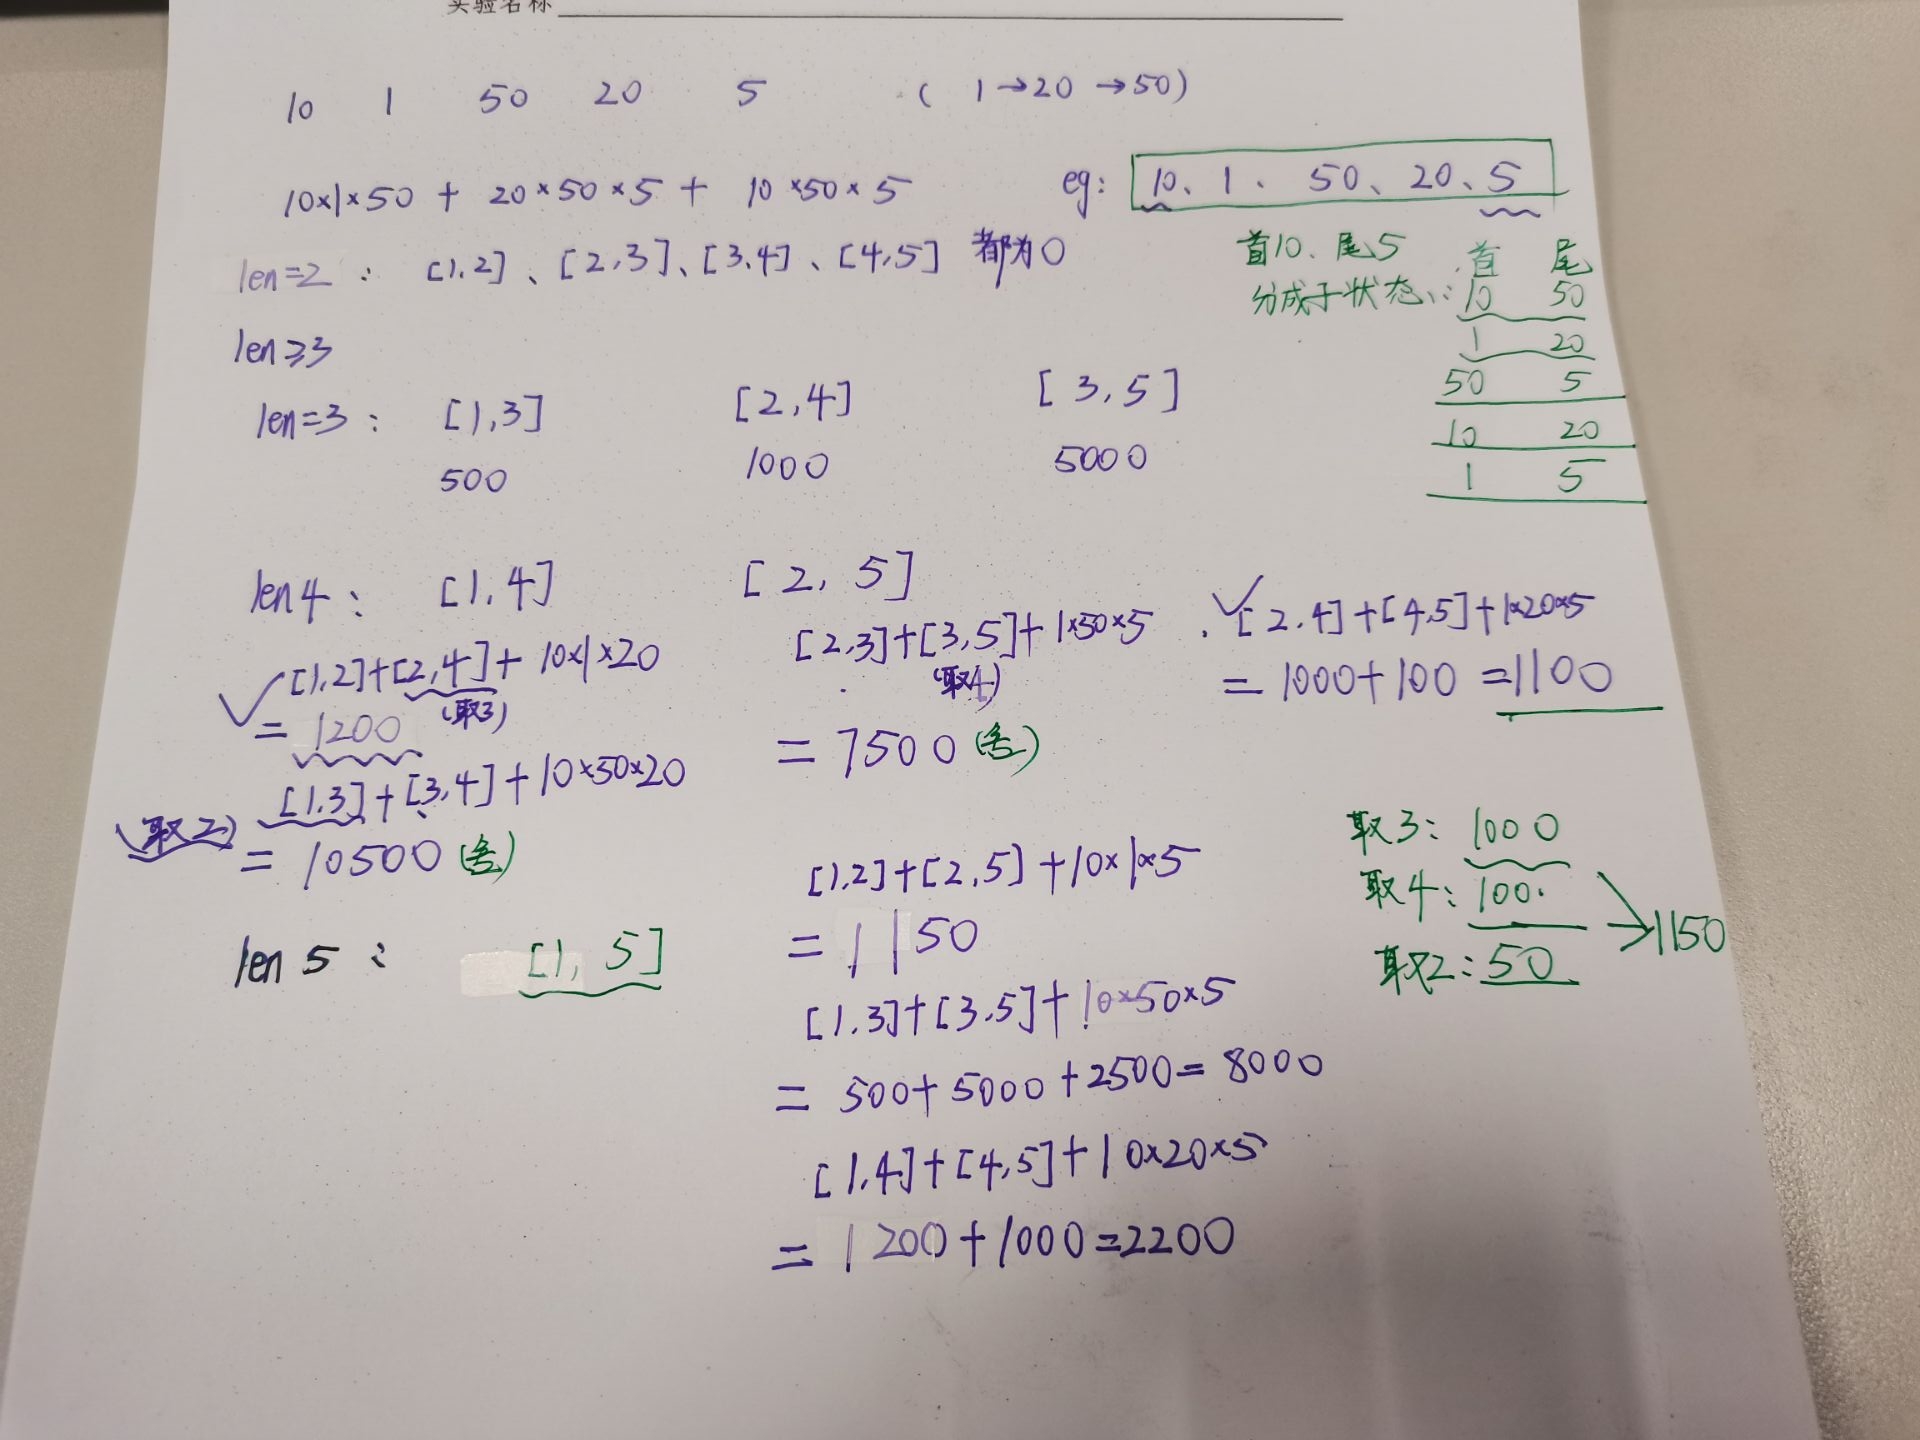 实验名称
10 1 50 20 5 ( 1→20→50)
10×1×50 + 20×50×5 + 10×50×5
eg: 10、1、50、20、5
len=2: [1,2]、[2,3]、[3,4]、[4,5] 都为0
首10、尾5
分成子状态:
首 尾
10 50
1 20
50 5
10 20
1 5
len≥3
len=3: [1,3] [2,4] [3,5]
500 1000 5000
len4: [1,4] [2,5]
✓[1,2]+[2,4]+10×1×20
(取3)
=1200
[1,3]+[3,4]+10×50×20
(取2)
=10500(舍)
[2,3]+[3,5]+1×50×5
(取4)
=7500(舍)
✓[2,4]+[4,5]+1×20×5
=1000+100=1100
len 5: [1,5]
[1,2]+[2,5]+10×1×5
=1150
[1,3]+[3,5]+10×50×5
=500+5000+2500=8000
[1,4]+[4,5]+10×20×5
=1200+1000=2200
取3:1000
取4:100
取2:50
→1150